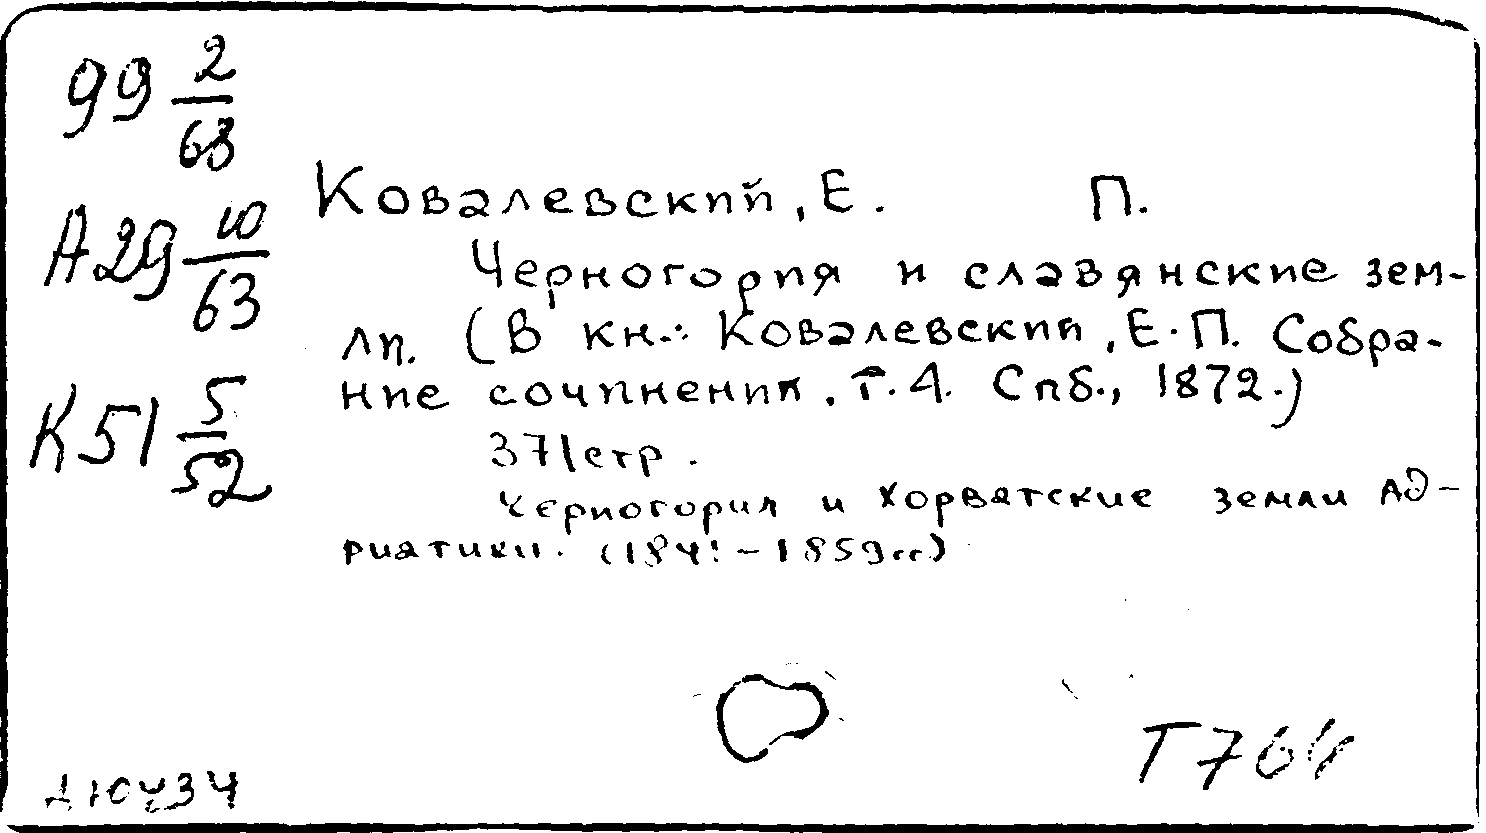 99 2/63
А29 10/63
К51 5/52
Ковалевский, Е. П.
Черногория и славянские зем-
ли. (В кн.: Ковалевский, Е.П. Собра-
ние сочинений, т. 4. Спб., 1872.)
371стр.
Черногория и хорватские земли Ад-
риатики. (1841-1859гг)
Т764